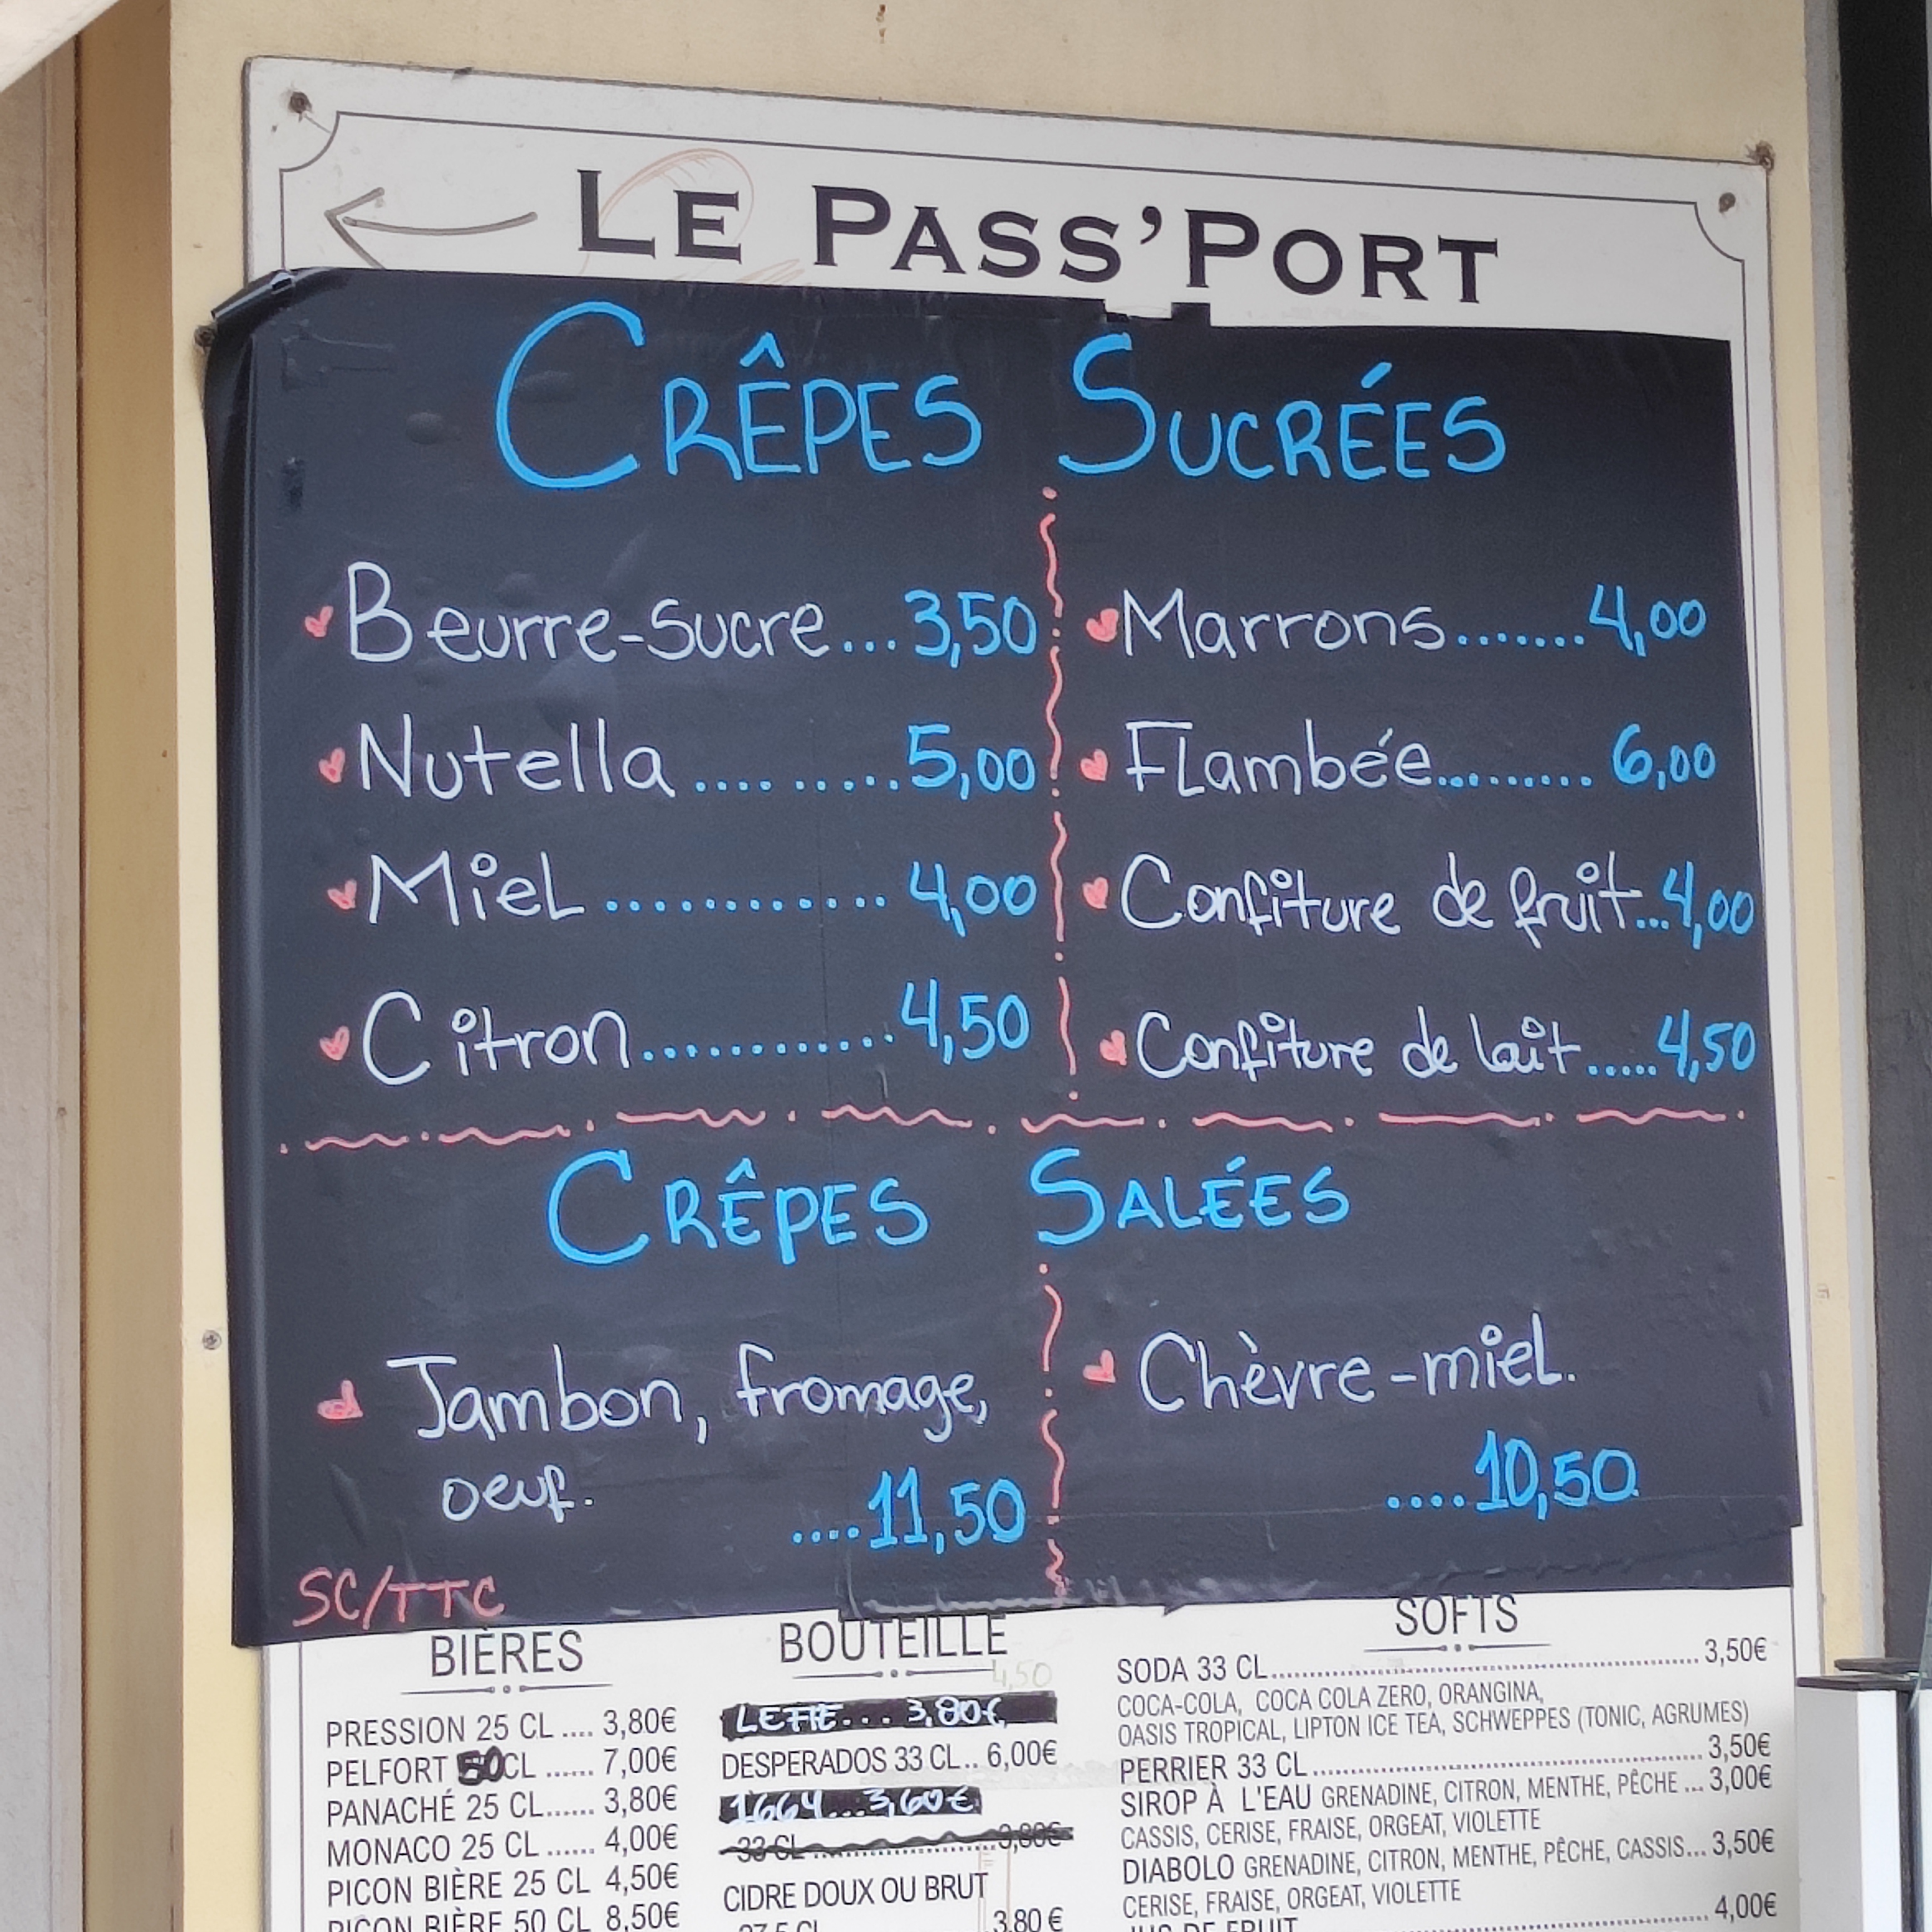 LE PASS'PORT
CRÊPES SUCRÉES
Beurre-sucre...3,50
Nutella..........5,00
Miel............4,00
Citron............4,50
Marrons.......4,00
Flambée......... 6,00
Confiture de fruit...4,00
Confiture de lait.....4,50
CRÊPES SALÉES
Jambon, fromage,
oeuf.
....11,50
Chèvre-miel.
....10,50
SC/TTC
BIÈRES
PRESSION 25 CL .... 3,80€
PELFORT 50CL ...... 7,00€
PANACHÉ 25 CL...... 3,80€
MONACO 25 CL ...... 4,00€
PICON BIÈRE 25 CL 4,50€
PICON BIÈRE 50 CL 8,50€
BOUTEILLE
4,50
LEFFE... 3,80€
DESPERADOS 33 CL.. 6,00€
1664...3,60€
33 CL
CIDRE DOUX OU BRUT
27,5 CL 3,80 €
SOFTS
SODA 33 CL.......... 3,50€
COCA-COLA, COCA COLA ZERO, ORANGINA,
OASIS TROPICAL, LIPTON ICE TEA, SCHWEPPES (TONIC, AGRUMES)
PERRIER 33 CL.......... 3,50€
SIROP À L'EAU GRENADINE, CITRON, MENTHE, PÊCHE ... 3,00€
CASSIS, CERISE, FRAISE, ORGEAT, VIOLETTE
DIABOLO GRENADINE, CITRON, MENTHE, PÊCHE, CASSIS... 3,50€
CERISE, FRAISE, ORGEAT, VIOLETTE
JUS DE FRUIT.......... 4,00€